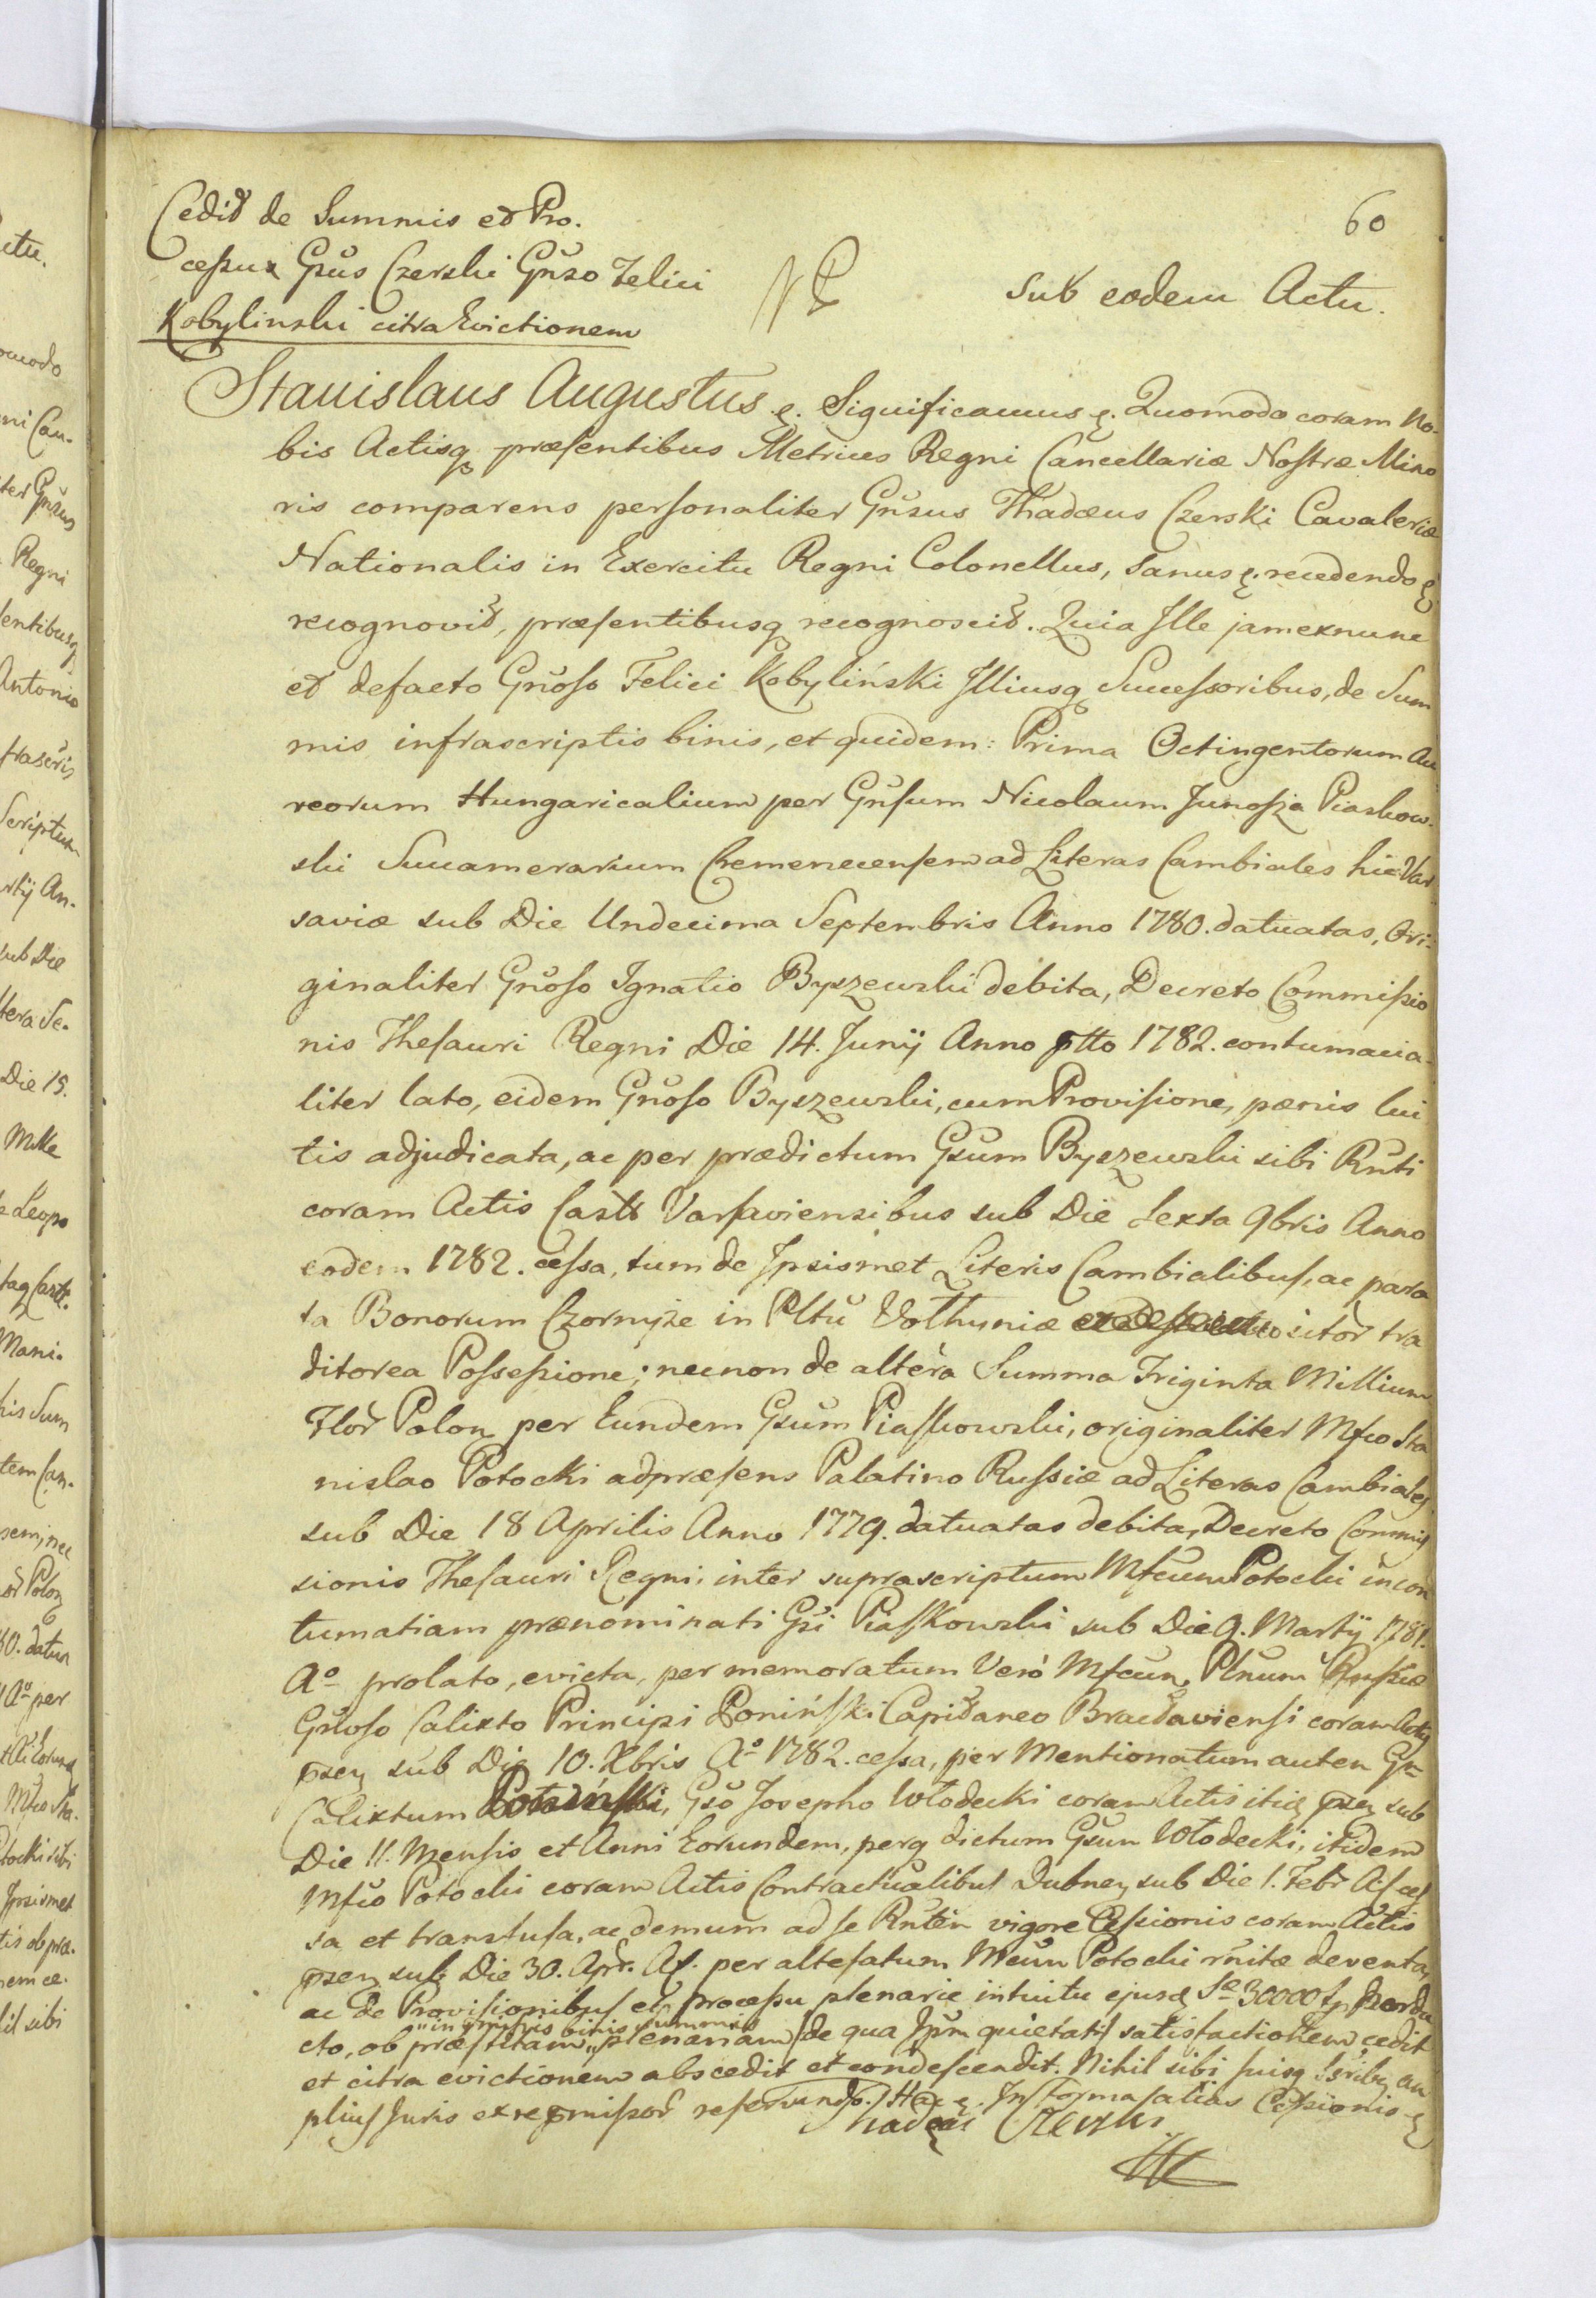 60
Cedit de Summis et Pro-
cessu Gnsus Czerski Gnoso Felici
Kobylinski citra Evictionem
Sub eodem Actu.
Stanislaus Augustus &. Significamus &. Quomodo coram No-
bis Actisq præsentibus Metrices Regni Cancellariæ Nostræ Mino
ris comparens personaliter Gnsus Thadæus Czerski Cavaleriæ
Nationalis in Exercitu Regni Colonellus, Sanus &. recedendo &
recognovit, præsentibusq recognoscit. Quia Ille jam exnunc
et defacto Gnoso Felici Kobyliński Illiusq Successoribus, de Sum
mis infrascriptis binis, et quidem: Prima Octingentorum Au
reorum Hungaricalium per Gnsum Nicolaum Junosza Piaskow-
ski Succamerarium Cremenecensem ad Literas Cambiales hic Var
saviæ sub Die Undecima Septembris Anno 1780. datuatas, Ori-
ginaliter Gnoso Ignatio Byszewski debita, Decreto Commissio
nis Thesauri Regni Die 14. Junij Anno ptto 1782. contumacia-
liter lato, eidem Gnoso Byszewski, cum Provisione, pænis lui
tis adjudicata, ac per prædictum Gsum Byszewski sibi Rnti
coram Actis Castr Varsaviensibus sub Die Sexta 9bris Anno
eodem 1782. cessa, tum de Ipsismet Literis Cambialibus, ac para
ta Bonorum Czornyże in Pltu Volhyniæ sitor tra
ditorea Possessione; necnon de altera Summa Triginta Millium
Flor Polon per Eundem Gsum Piaskowski, originaliter Mfco Sta
nislao Potocki adpræsens Palatino Russiæ ad Literas Cambiales
sub Die 18 Aprilis Anno 1779. datuatas debita, Decreto Commis
sionis Thesauri Regni, inter suprascriptum Mfcum Potocki in con
tumatiam prænominati Gsi Piaskowski sub Die 9. Martij 1781.
Ao prolato, evicta, per memoratum Vero Mfcum Plnum Russiæ
Gnoso Calixto Principi Poniński Capitaneo Bracłaviensi coram Actis
psen sub Die 10. Xbris Ao 1782. cessa, per Mentionatum autem Gn
Calixtum Poniński, Gso Josepho Włodecki coram Actis itid psen sub
Die 11. Mensis et Anni Eorundem, perq dictum Gsum Włodecki, itidem
Mfco Potocki coram Actis Contractualibus Dubnen sub Die 1. Febr As ces
sa et transfusa, ac demum ad se Rntem vigore Cessionis coram Actis
psen sub Die 30. Apr. As. per altefatum Mcum Potocki rnitæ deventa,
ac de Provisionibus et processu plenarie intuitu ejusd Sæ 30000 f,
cto, ob præstitam plenariam (de qua Ipsum quietat) satisfactionem, cedit
in præmissis binis summis
et citra evictionem abscedit et condescendit. Nihil sibi suisq am
plius Juris ex præmissor reservando. Hac &. In forma salias Cessionis &
Thadeus Czerski